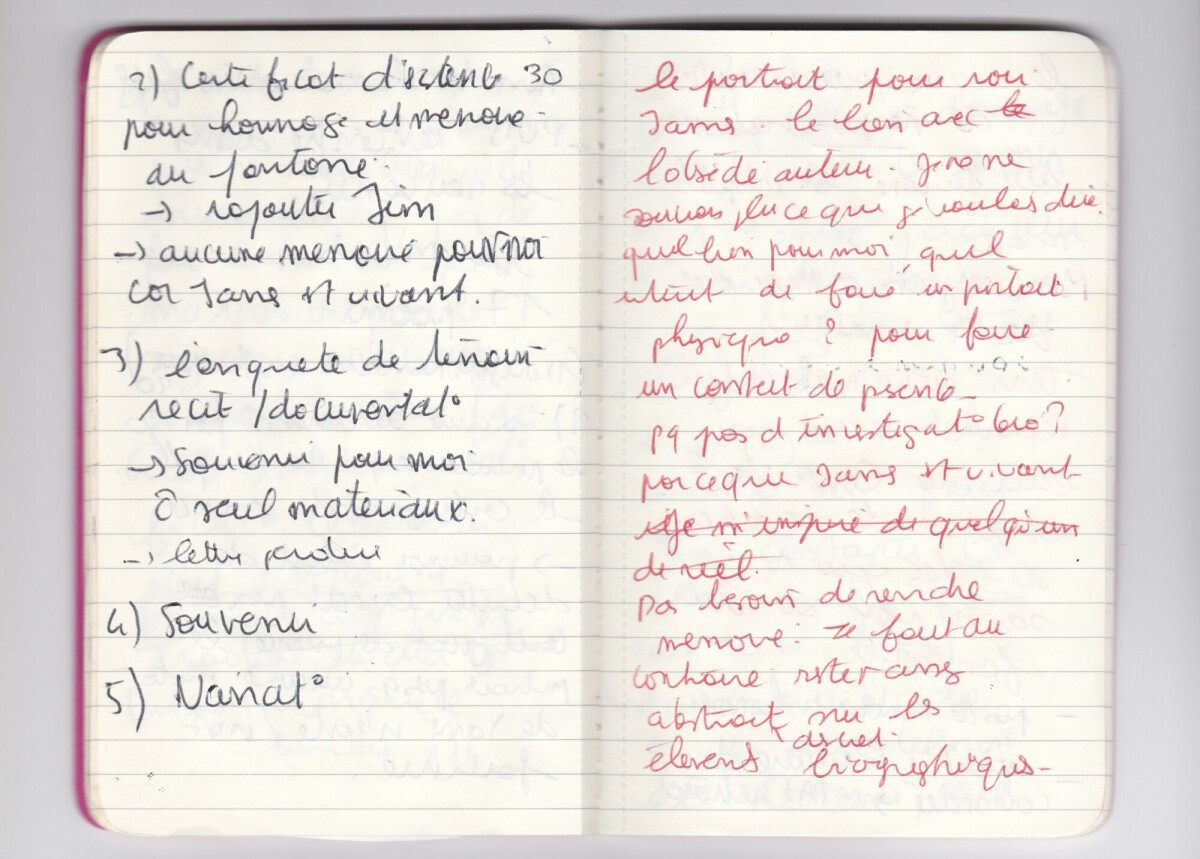 2) Certificat d'existence 30
pour hommage et mémoire
au fantome.
→ rajouter Jim
→ aucune mémoire pour moi
car Jans et vivant.
3) l'enquete de témoin
récit / documentat°
→ Souvenir pour moi
seul materiaux.
→ lettre perdue
4) Souvenir
5) Narrat°
le portrait pour mon
Jans. le lien avec le
l'obsédé auteur. Je ne
plus ce que je voulais dire.
quel lien pour moi, quel
interet de faire un portrait
physique ? pour faire
un constat de présence
pq pas d'investigat° bio ?
parce que Jans est vivant
Je m'inspire de quelqu'un
de réel.
Pas besoin de rendre
mémoire. Il faut au
contraire rester assez
abstrait sur les
discret.
élements biographiques-